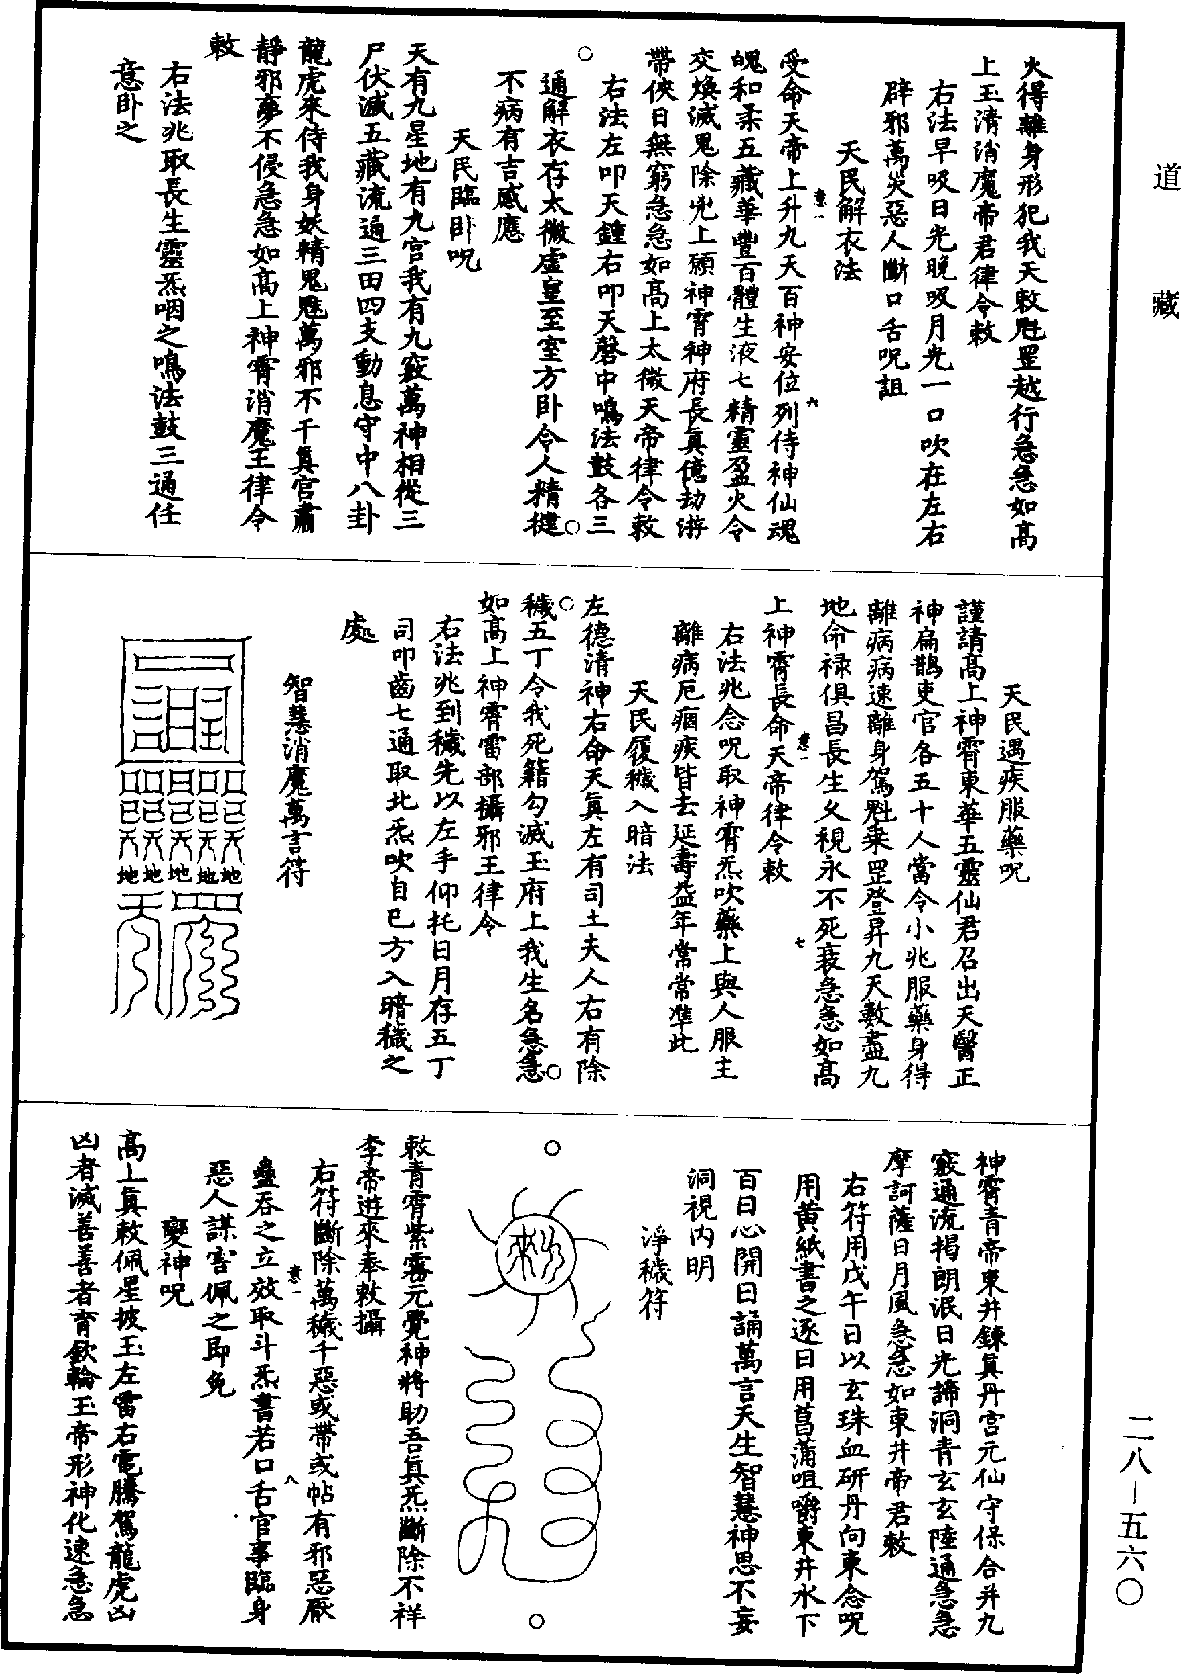 道藏
火得離身形犯我天敕魁罡越行急急如高
上玉清消魔帝君律令敕
右法早吸日光晚吸月光一口吹在左右
辟邪萬災惡人斷口舌呪詛
天民解衣法
受命天帝上升九天百神安位列侍神仙魂
魄和柔五藏華豐百體生液七精靈盈火令
交煥滅鬼除兇上願神霄神府長真億劫遊
帶俠日無窮急急如高上太微天帝律令敕
右法左叩天鐘右叩天磬中鳴法鼓各三
通解衣存太微虛皇至室方卧令人精健
不病有吉感應
天民臨卧呪
天有九星地有九宮我有九竅萬神相從三
尸伏滅五藏流通三田四支動息守中八卦
龍虎來侍我身妖精鬼魅萬邪不干真官肅
靜邪夢不侵急急如高上神霄消魔王律令
敕
右法兆取長生靈炁咽之鳴法鼓三通任
意卧之
天民遇疾服藥呪
謹請高上神霄東華五靈仙君召出天醫正
神扁鵲吏官各五十人當令小兆服藥身得
離病病速離身駕魁乘罡登昇九天數盡九
地命禄俱昌長生久視永不死衰急急如高
上神霄長命天帝律令敕
右法兆念呪取神霄炁吹藥上與人服主
離病厄痼疾皆去延壽益年常常準此
天民履穢入暗法
左德清神右命天真左有司土夫人右有除
穢五丁令我死籍勾滅玉府上我生名急急
如高上神霄雷部攝邪王律令
右法兆到穢先以左手仰托日月存五丁
司叩齒七通取北炁吹自已方入暗穢之
處
智慧消魔萬言符
神霄青帝東井鍊真丹宮元仙守保合并九
竅通流揭朗泯日光諦洞青玄玄陸通急急
摩訶薩日月風急急如東井帝君敕
右符用戊午日以玄珠血研丹向東念呪
用黄紙書之逐日用菖蒲咀嚼東井水下
百日心開日誦萬言天生智慧神思不妄
洞視内明
淨穢符
敕青霄紫霧元覺神將助吾真炁斷除不祥
李帝遊來奉敕攝
右符斷除萬穢千惡或帶或帖有邪惡厭
蠱吞之立效取斗炁書若口舌官事臨身
惡人謀害佩之即免
變神呪
高上真敕佩星披玉左雷右電騰駕龍虎凶
凶者滅善善者育欽輪玉帝形神化速急急
二八－五六〇